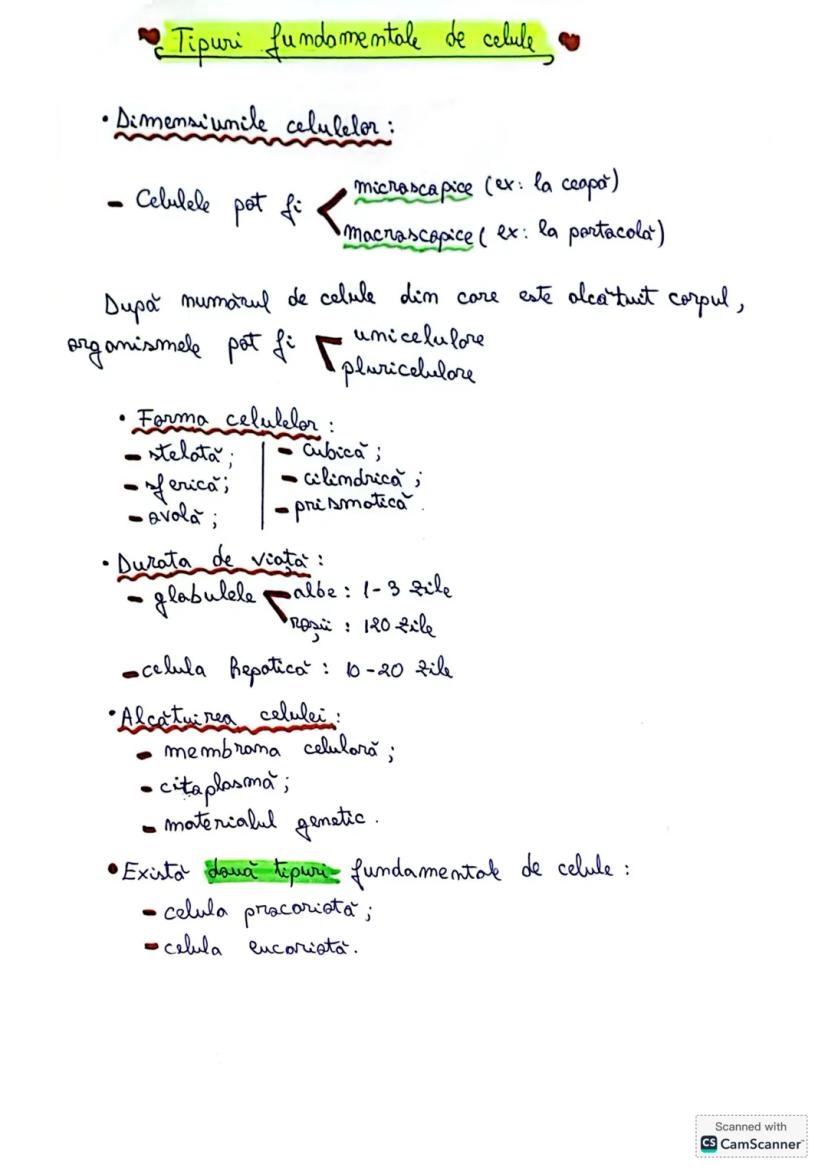 Tipuri fundamentale de celule
• Dimensiunile celulelor:
- Celulele pot fi
microscopice (ex: la ceapă)
macroscopice (ex: la portocală)
După numărul de celule din care este alcătuit corpul,
organismele pot fi
unicelulare
pluricelulare
• Forma celulelor:
- stelată;
- sferică;
- ovală;
- cubică;
- cilindrică;
- prismatică.
• Durata de viață:
- globulele
albe: 1-3 zile
roșii: 120 zile
- celula hepatică: 10-20 zile
• Alcătuirea celulei:
- membrana celulară;
- citoplasmă;
- materialul genetic.
• Există două tipuri fundamentale de celule:
- celula procariotă;
- celula eucariotă.
Scanned with
CS CamScanner